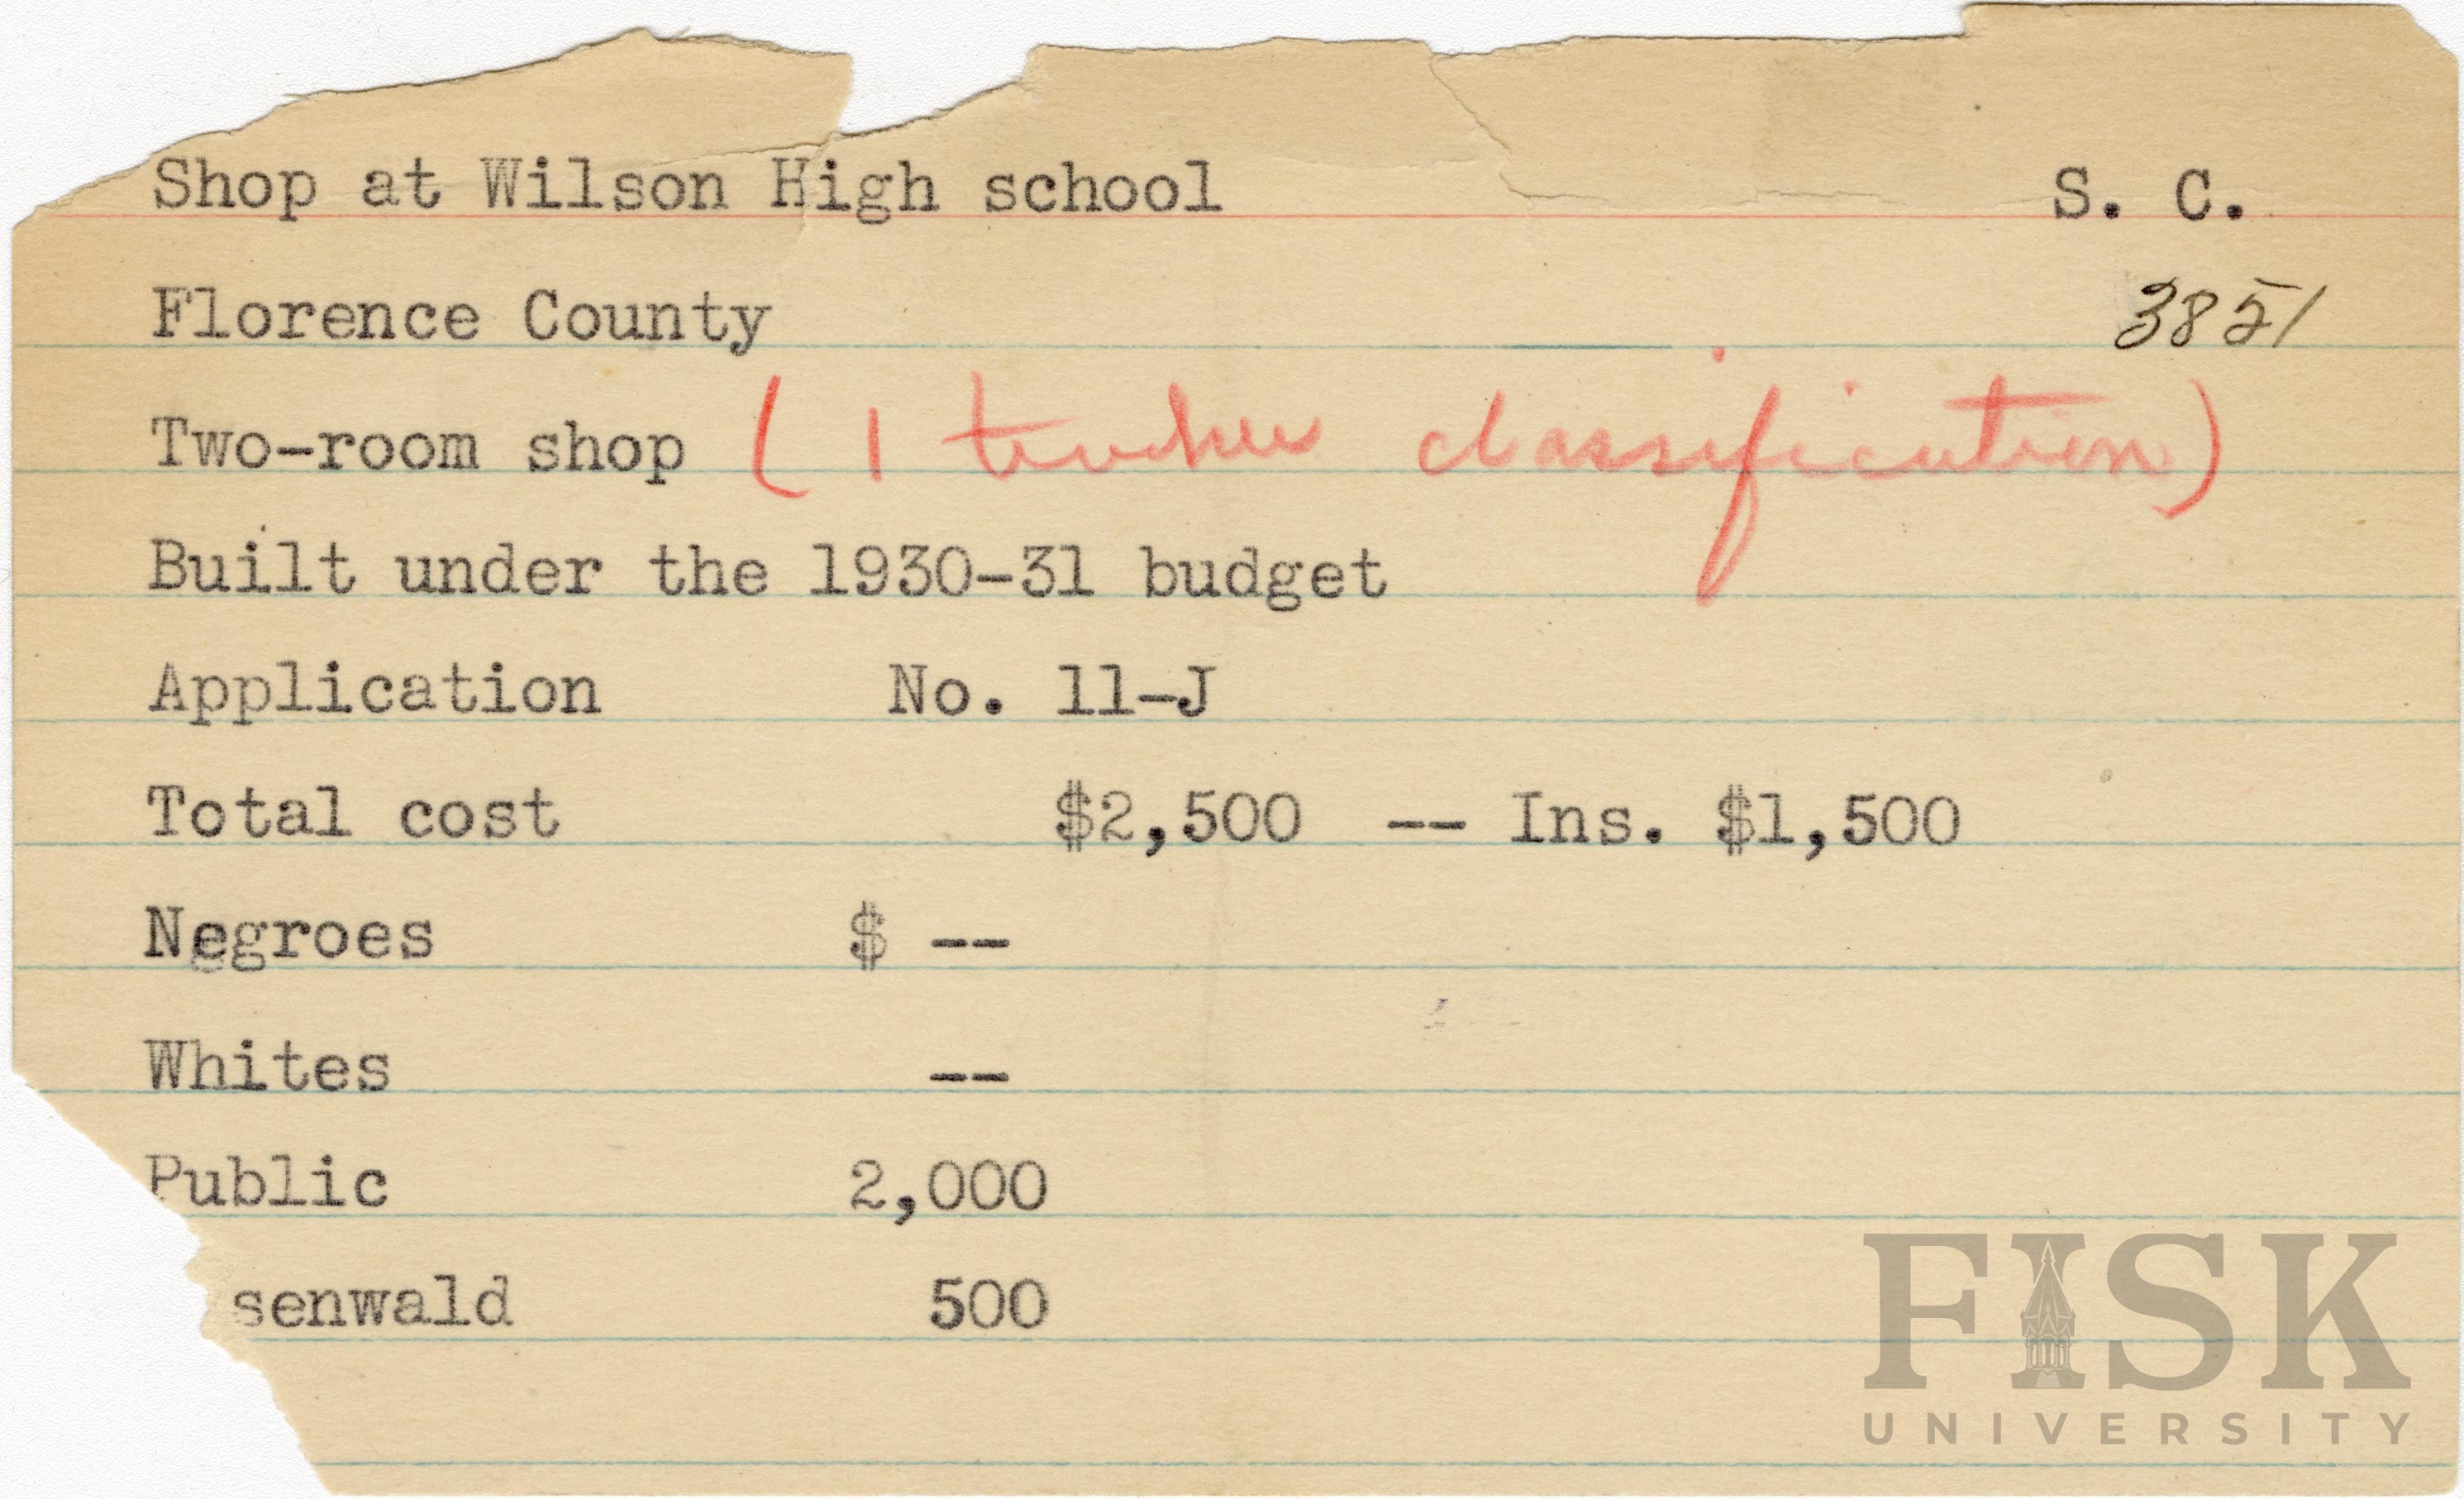 Shop at Wilson High school S. C.
Florence County 3851
Two-room shop ( 1 teacher classification)
Built under the 1930-31 budget
Application No. 11-J
Total cost $2,500 -- Ins. $1,500
Negroes $ --
Whites --
Public 2,000
senwald 500
FISK
UNIVERSITY